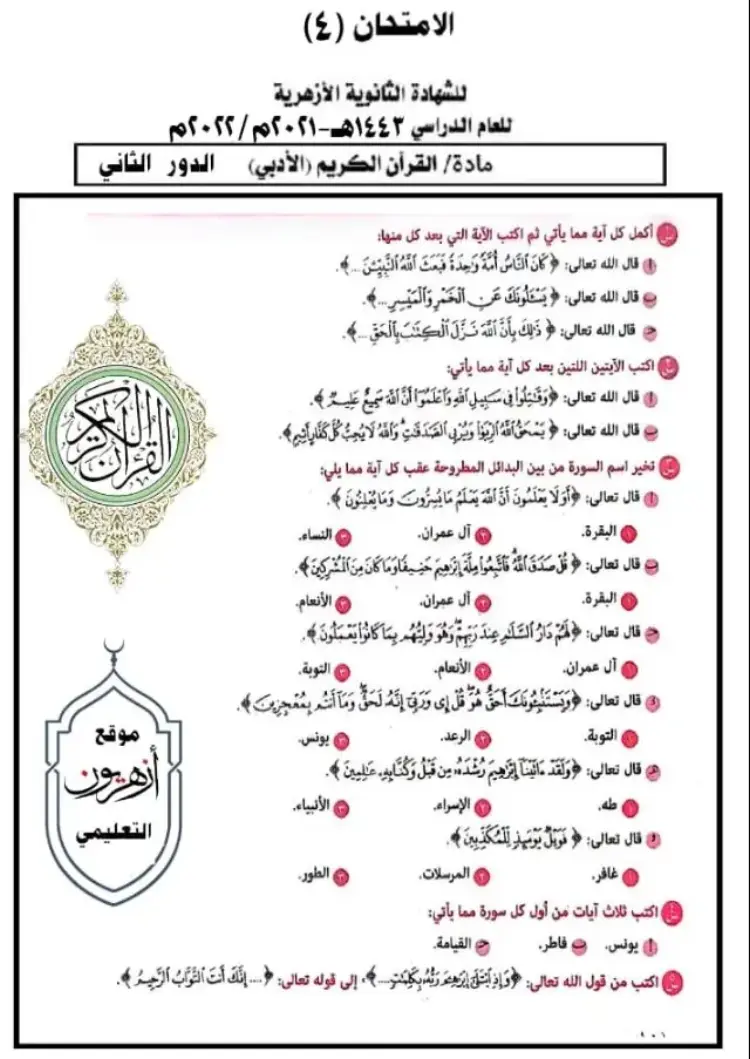 الامتحان (٤)
للشهادة الثانوية الأزهرية
للعام الدراسي ١٤٤٣هـ-٢٠٢١م/٢٠٢٢م
مادة/ القرآن الكريم (الأدبي) الدور الثاني
أكمل كل آية مما يأتي ثم اكتب الآية التي بعد كل منها:
أ قال الله تعالى: ﴿كَانَ النَّاسُ أُمَّةً وَاحِدَةً فَبَعَثَ اللَّهُ النَّبِيِّينَ ...﴾.
ب قال الله تعالى: ﴿يَسْـَٔلُونَكَ عَنِ الْخَمْرِ وَالْمَيْسِرِ ...﴾.
ج قال الله تعالى: ﴿ذَٰلِكَ بِأَنَّ اللَّهَ نَزَّلَ الْكِتَٰبَ بِالْحَقِّ ...﴾.
اكتب الآيتين اللتين بعد كل آية مما يأتي:
أ قال الله تعالى: ﴿وَقَٰتِلُوا۟ فِى سَبِيلِ اللَّهِ وَاعْلَمُوٓا۟ أَنَّ اللَّهَ سَمِيعٌ عَلِيمٌ﴾.
ب قال الله تعالى: ﴿يَمْحَقُ اللَّهُ الرِّبَوٰا۟ وَيُرْبِى الصَّدَقَٰتِ وَاللَّهُ لَا يُحِبُّ كُلَّ كَفَّارٍ أَثِيمٍ﴾.
تخير اسم السورة من بين البدائل المطروحة عقب كل آية مما يلي:
أ قال تعالى: ﴿أَوَلَا يَعْلَمُونَ أَنَّ اللَّهَ يَعْلَمُ مَا يُسِرُّونَ وَمَا يُعْلِنُونَ﴾.
١ البقرة. ٢ آل عمران. ٣ النساء.
ب قال تعالى: ﴿قُلْ صَدَقَ اللَّهُ فَاتَّبِعُوا۟ مِلَّةَ إِبْرَٰهِيمَ حَنِيفًا وَمَا كَانَ مِنَ الْمُشْرِكِينَ﴾.
١ البقرة. ٢ آل عمران. ٣ الأنعام.
ج قال تعالى: ﴿لَهُمْ دَارُ السَّلَٰمِ عِندَ رَبِّهِمْ وَهُوَ وَلِيُّهُم بِمَا كَانُوا۟ يَعْمَلُونَ﴾.
١ آل عمران. ٢ الأنعام. ٣ التوبة.
د قال تعالى: ﴿وَيَسْتَنۢبِـُٔونَكَ أَحَقٌّ هُوَ قُلْ إِى وَرَبِّىٓ إِنَّهُ لَحَقٌّ وَمَآ أَنتُم بِمُعْجِزِينَ﴾.
١ التوبة. ٢ الرعد. ٣ يونس.
هـ قال تعالى: ﴿وَلَقَدْ ءَاتَيْنَآ إِبْرَٰهِيمَ رُشْدَهُ مِن قَبْلُ وَكُنَّا بِهِ عَٰلِمِينَ﴾.
١ طه. ٢ الإسراء. ٣ الأنبياء.
و قال تعالى: ﴿فَوَيْلٌ يَوْمَئِذٍ لِّلْمُكَذِّبِينَ﴾.
١ غافر. ٢ المرسلات. ٣ الطور.
اكتب ثلاث آيات من أول كل سورة مما يأتي:
أ يونس. ب فاطر. ج القيامة.
اكتب من قول الله تعالى: ﴿وَإِذِ ابْتَلَىٰٓ إِبْرَٰهِـمَ رَبُّهُ بِكَلِمَٰتٍ ...﴾، إلى قوله تعالى: ﴿.... إِنَّكَ أَنتَ التَّوَّابُ الرَّحِيمُ﴾.
القرآن الكريم
موقع
أزهريون
التعليمي